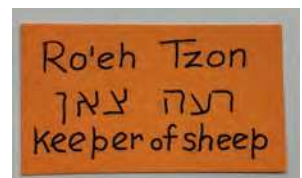 Ro'eh Tzon
רעה צאן
keeper of sheep